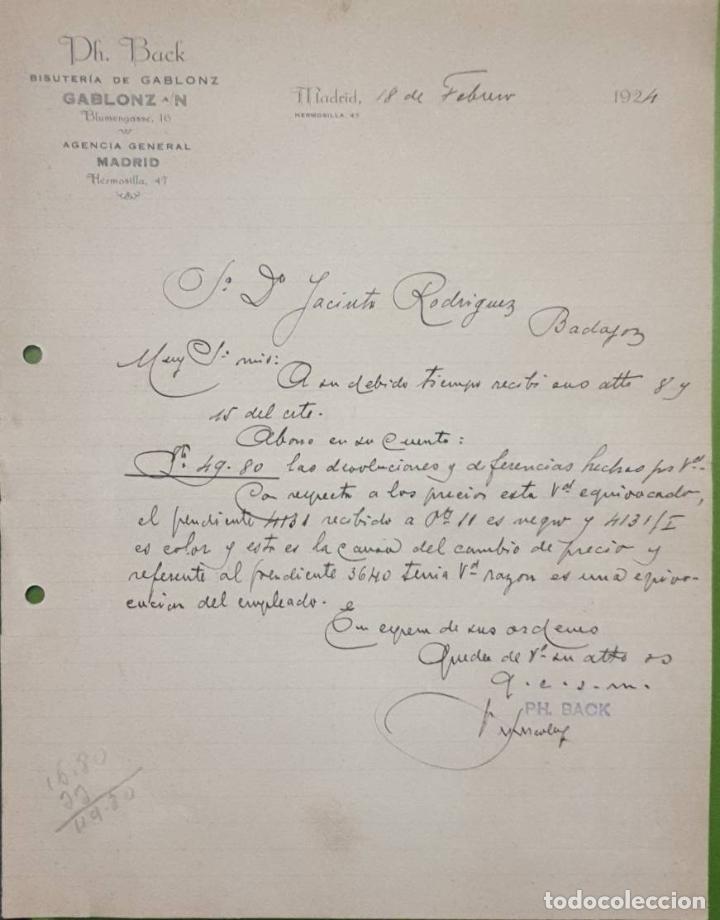 Ph. Back
BISUTERÍA DE GABLONZ
GABLONZ A/N
Blumengasse, 16
AGENCIA GENERAL
MADRID
Hermosilla, 47
Madrid, 18 de Febrero 1924
HERMOSILLA, 47
Sr. Dn Jacinto Rodriguez
Badajoz
Muy Sr. mio:
A su debido tiempo recibi sus atts 8 y
15 del cte.
Abono en su cuenta:
Pts. 49.80 las devoluciones y diferencias hechas por Vd.
Con respecto a los precios esta Vd equivocado,
el pendiente 4131 recibido a Pts 11 es negro y 4131/I
es color y esto es la causa del cambio de precio y
referente al pendiente 3640 tenia Vd razon es una equivo-
cacion del empleado.
En espera de sus ordenes
queda de Vd su atto ss
q. e. s. m.
PH. BACK
22
todocoleccion